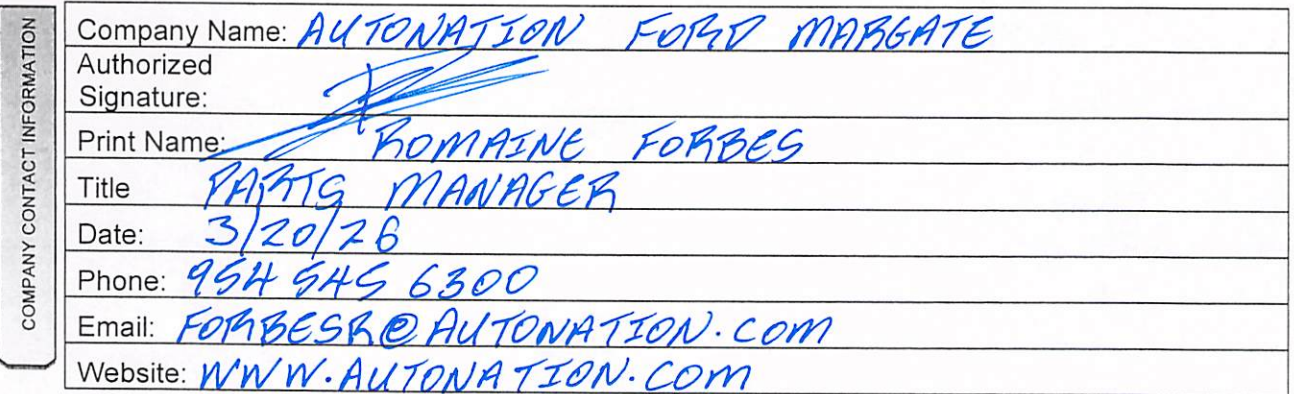 COMPANY CONTACT INFORMATION
Company Name: AUTONATION FORD MARGATE
Authorized
Signature:
Print Name: ROMAINE FORBES
Title PARTS MANAGER
Date: 3/20/26
Phone: 954 545 6300
Email: FORBESR@AUTONATION.COM
Website: WWW.AUTONATION.COM